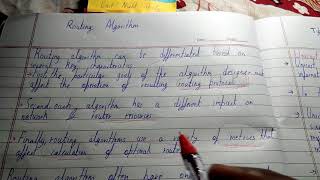 Routing Algorithm
Routing algorithm can be differentiated based on
several key characteristics
First the particular goals of the algorithm designer
affect the operation of resulting routing protocol
Second each algorithm has a different impact on
network & router resources
Finally routing algorithms use a of metrics that
affect calculation of optimal
Routing algorithms often have one